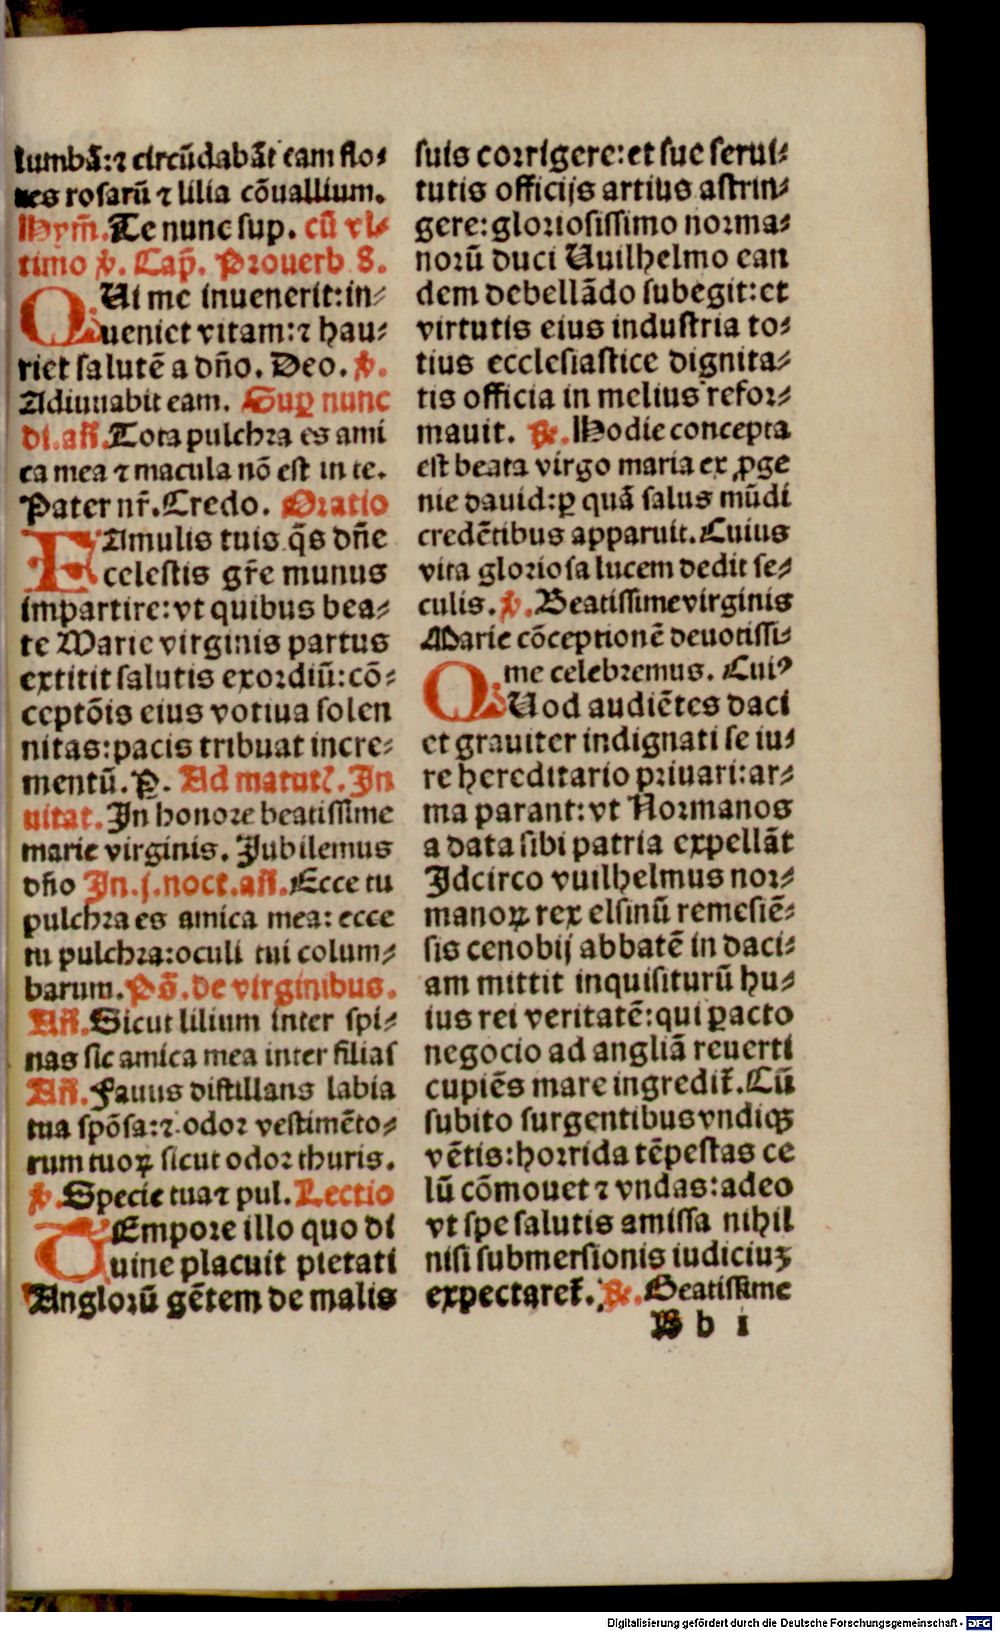 lumbā:⁊ circūdabāt eam flo-
res rosarū ⁊ lilia cōuallium.
Hym̄. Te nunc sup. cū vl-
timo ℣. Cap̄. Prouerb 8.
QUi me inuenerit:in-
ueniet vitam:⁊ hau-
riet salutē a dn̄o. Deo. ℣.
Adiuuabit eam. Suꝑ nunc
di. an̄. Tota pulchra es ami
ca mea ⁊ macula nō est in te.
Pater nr̄. Credo. Oratio
FAmulis tuis q̄s dn̄e
celestis gr̄e munus
impartire:vt quibus bea-
te Marie virginis partus
extitit salutis exordiū:cō-
ceptōis eius votiua solen
nitas:pacis tribuat incre-
mentū. P. Ad matut. In
uitat. In honore beatissime
marie virginis. Jubilemus
dn̄o In .j. noct. an̄. Ecce tu
pulchra es amica mea: ecce
tu pulchra:oculi tui colum-
barum. Ps̄. de virginibus.
An̄. Sicut lilium inter spi-
nas sic amica mea inter filias
An̄. Fauus distillans labia
tua spōsa:⁊ odor vestimēto-
rum tuoꝝ sicut odor thuris.
℣. Specie tua ⁊ pul. Lectio
TEmpore illo quo di
uine placuit pietati
Anglorū gētem de malis
suis corrigere:et sue serui-
tutis officijs artius astrin-
gere:gloriosissimo norma-
norū duci Vuilhelmo ean
dem debellādo subegit:et
virtutis eius industria to-
tius ecclesiastice dignita-
tis officia in melius refor-
mauit. ℟. Hodie concepta
est beata virgo maria ex ꝓge
nie dauid:ꝑ quā salus mūdi
credētibus apparuit. Cuius
vita gloriosa lucem dedit se-
culis. ℣. Beatissime virginis
Marie cōceptionē deuotissi-
me celebremus. Cuiꝰ
QUod audiētes daci
et grauiter indignati se iu-
re hereditario priuari:ar-
ma parant:vt Normanos
a data sibi patria expellāt
Idcirco vuilhelmus nor-
manoꝝ rex elsinū remesiē-
sis cenobij abbatē in daci-
am mittit inquisiturū hu-
ius rei veritatē:qui ꝑacto
negocio ad angliā reuerti
cupiēs mare ingredit̄. Cū
subito surgentibus vndiqꝫ
vētis:horrida tēpestas ce
lū cōmouet ⁊ vndas:adeo
vt spe salutis amissa nihil
nisi submersionis iudiciuꝫ
expectaret̄. ℟. Beatissime
B b i
Digitalisierung gefördert durch die Deutsche Forschungsgemeinschaft - DFG